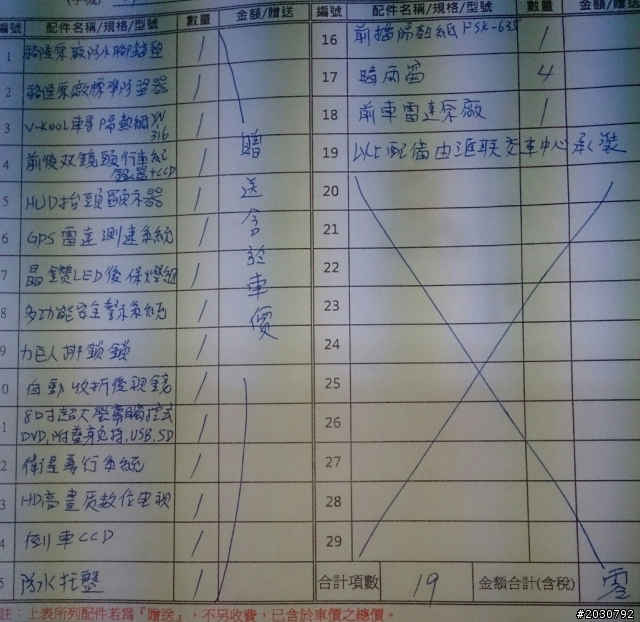 編號 配件名稱/規格/型號 數量 金額/贈送
1 原廠防水腳踏墊 1
2 原廠標準防盜器 1
3 V-KOOL車專隔熱紙 1
4 前後双鏡頭行車紀錄器+CCD 1
5 HUD抬頭顯示器 1
6 GPS雷達測速系統 1
7 晶鑽LED後保燈組 1
8 多功能安全警示系統 1
9 力巨人排鎖鎖 1
10 自動收折後視鏡 1
11 8吋超大螢幕觸控式
DVD,附藍芽免持,USB,SD 1
12 衛星導行系統 1
13 HD高畫質數位電視 1
14 倒車CCD 1
15 防水托盤 1
贈送含於車價
編號 配件名稱/規格/型號 數量 金額/贈送
16 前擋隔熱紙FSK- 1
17 晴雨窗 4
18 前車雷達原廠 1
19 以上配備由匯联交車中心承裝
20
21
22
23
24
25
26
27
28
29
合計項數 19 金額合計(含稅) 零
註：上表所列配件若為『贈送』，不另收費，已含於車價之總價。
#2030792